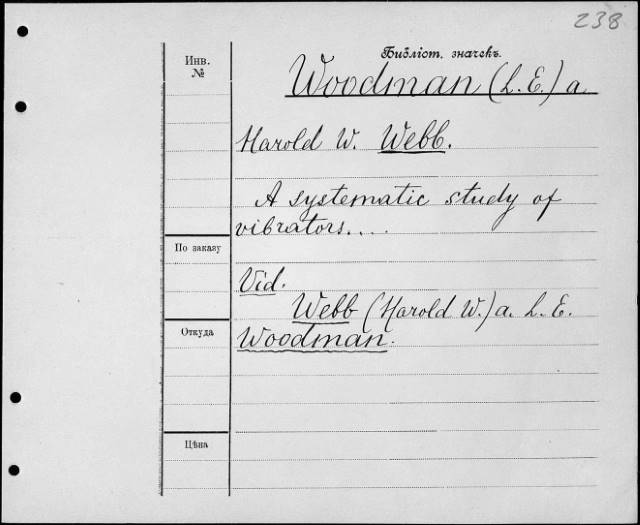 238
Библіот. значекъ.
Инв.
№
Woodman (L. E.) a.
Harold W. Webb.
A systematic study of
vibrators....
По заказу
Vid.
Webb (Harold W.) a. L. E.
Откуда
Woodman.
Цѣна